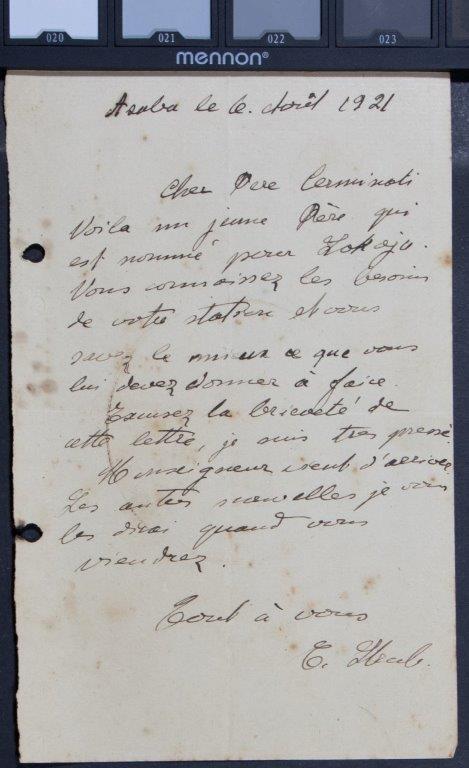 020 021 022 023
mennon®
Asaba le 6. Août 1921
Cher Père Cerminati
Voila un jeune Père qui
est nommé pour Lokoja.
Vous connaissez les besoins
de votre station et vous
savez le mieux ce que vous
lui devez donner à faire.
Excusez la brieveté de
cette lettre, je suis tres pressé.
Monseigneur vient d'arriver
Les autres nouvelles je vous
les dirai quand vous
viendrez.
Tout à vous